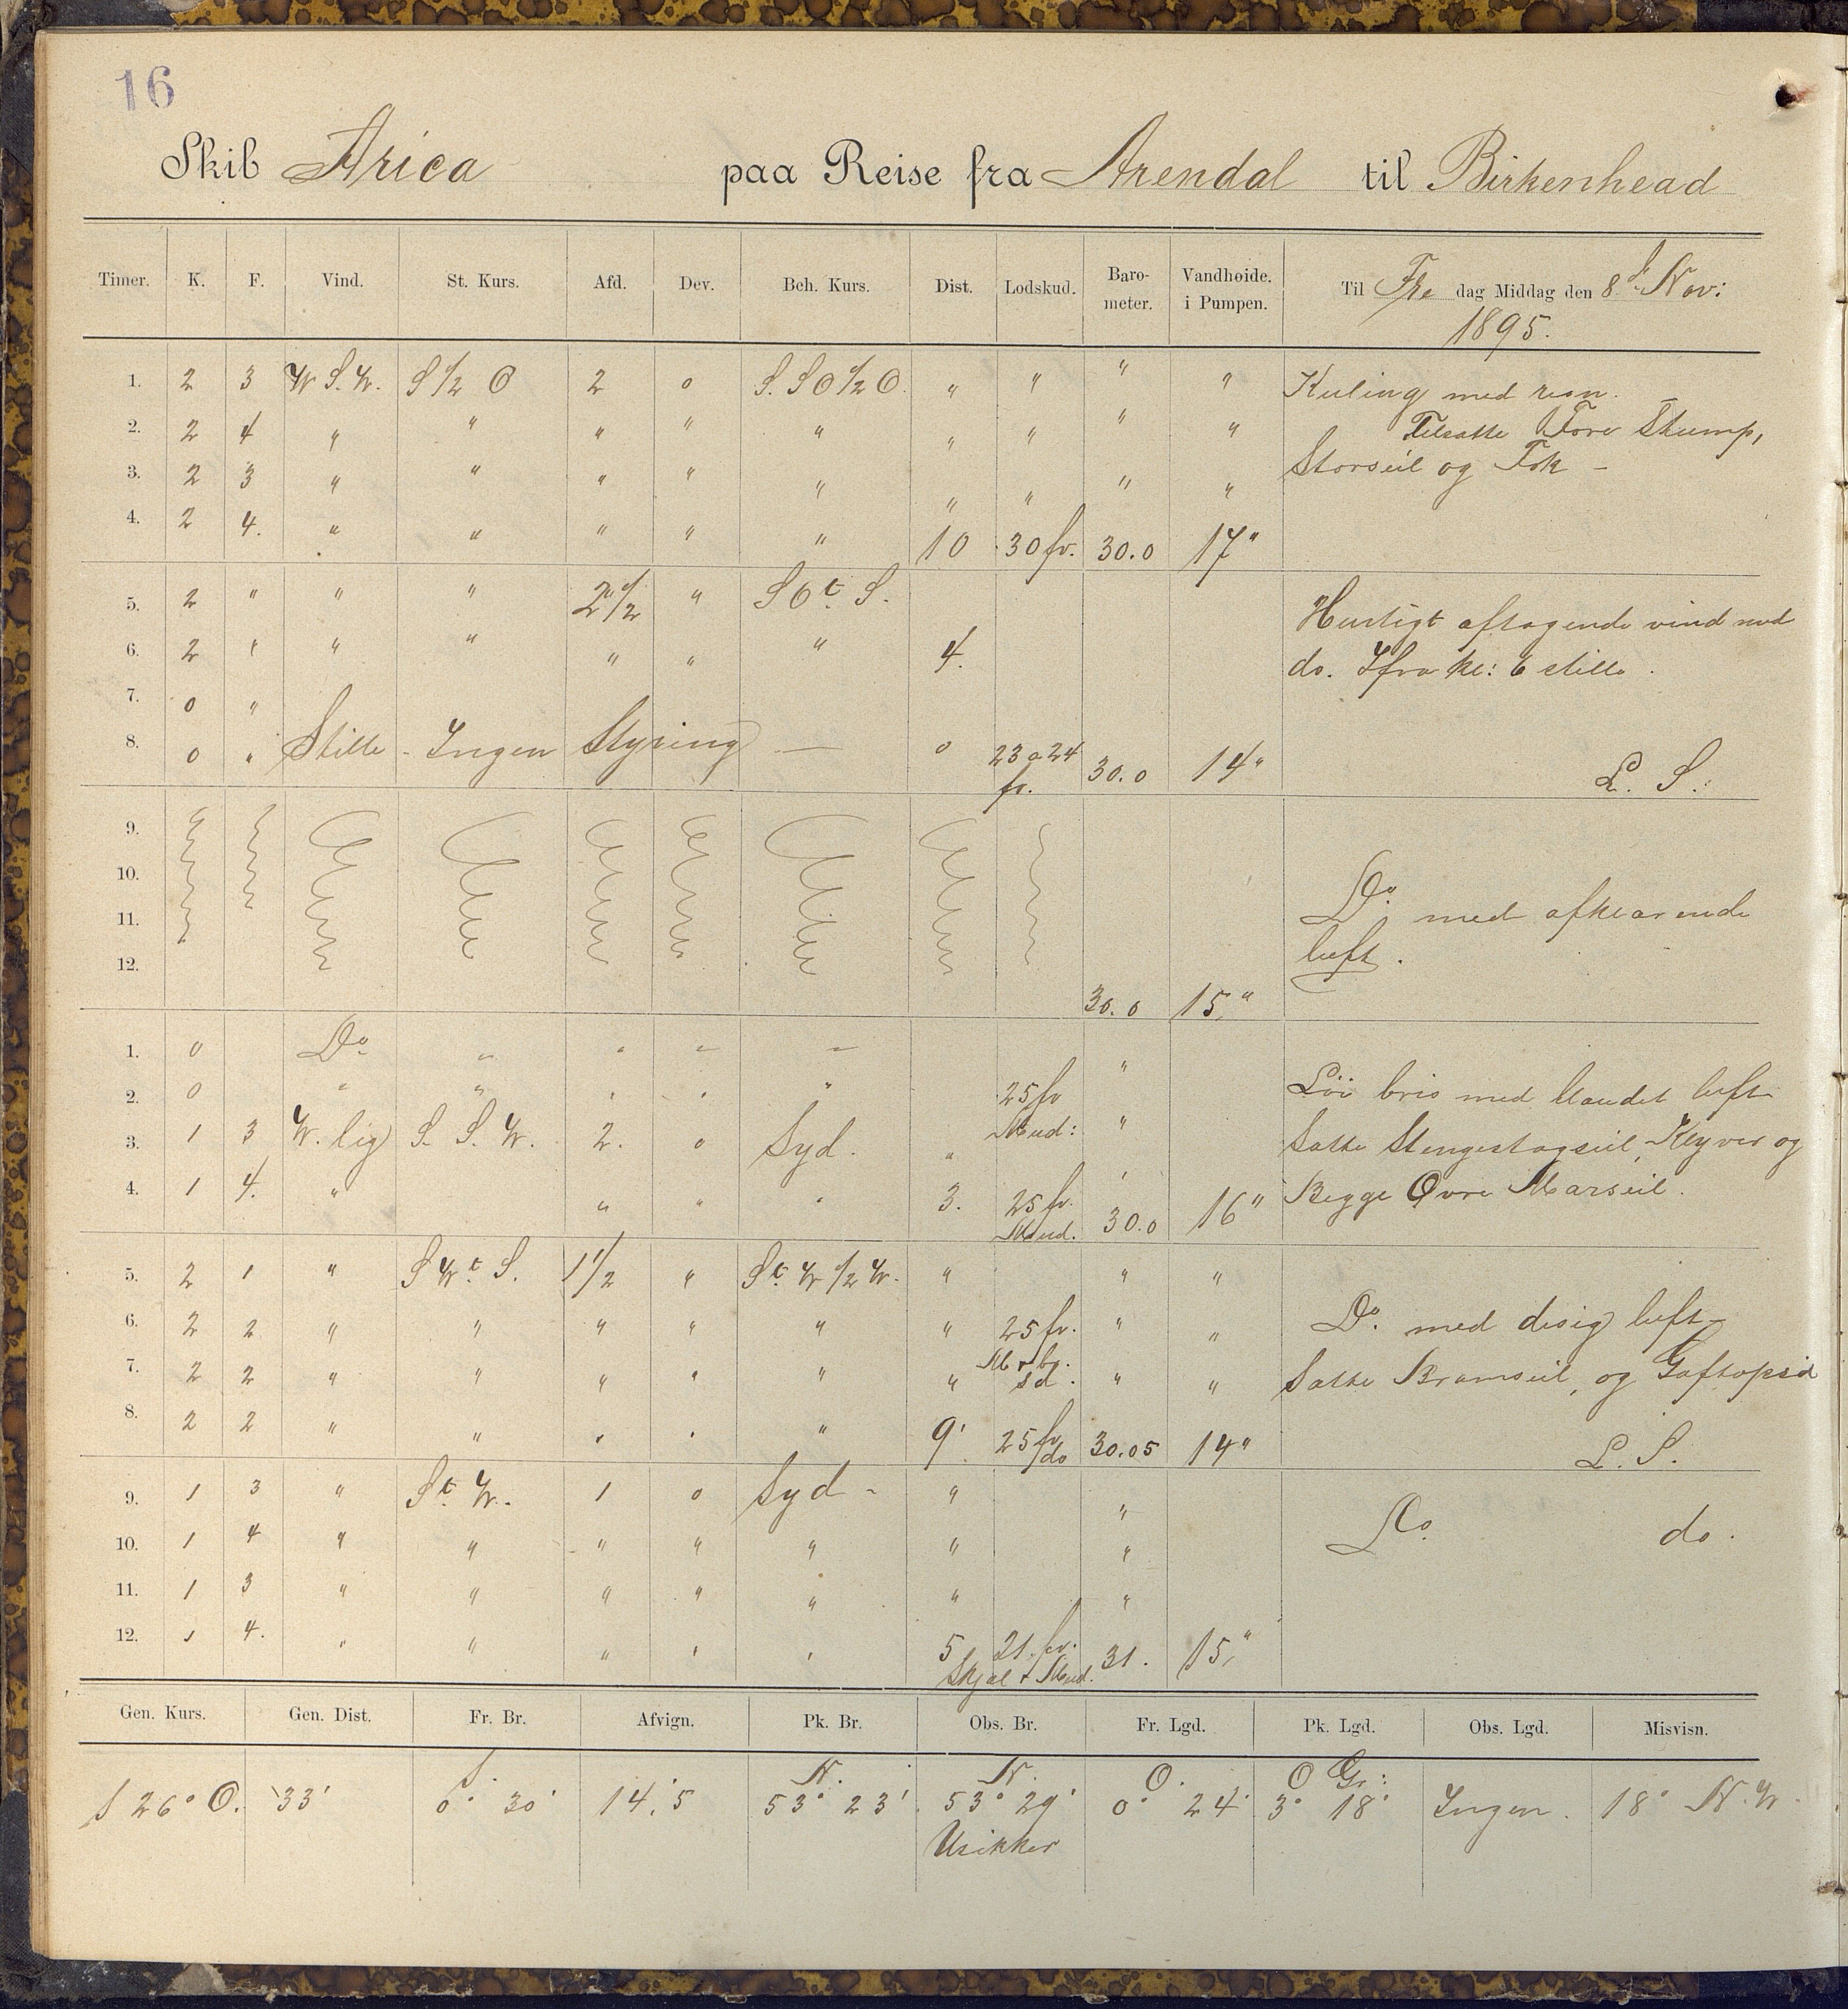 16
Skib Arica paa Reise fra Arendal til Birkenhead
Timer. K. F. Vind. St. Kurs. Afd. Dev. Beh. Kurs. Dist. Lodskud. Baro- meter. Vandhøide. i Pumpen. Til Fre dag Middag den 8d Nov:
1895.
1. 2 3 W S. W. S 1/2 O 2 0 S. S O 1/2 O. " " " " Kuling med regn.
2. 2 4 " " " " " " " " " Tilsatte Fore Stump,
3. 2 3 " " " " " " " " " Storseil og Fok -
4. 2 4. " " " " " 10 30 fv. 30.0 17"
5. 2 " " " 2 1/2 " S O t. S. Hurtigt aftagende vind med
6. 2 1 " " " " " 4. do. Ifra kl: 6 stille.
7. 0 "
8. 0 " Stille - Ingen Styring — 0 23 a 24 fv. 30.0 14" L. S.:
9.
10. Do. med afklarende
11. luft.
12. 30.0 15"
1. 0 Do " " " " "
2. 0 " " " " " 25 fv Løi bris med blandet luft
3. 1 3 W. lig S. S. W. 2. 0 Syd. " Mud: " Satte Stengestagseil, Klyver og
4. 1 4. " " " " 3. 25 fv. Mud. 30.0 16" Begge Øvre Marseil.
5. 2 1 " S W t. S. 1 1/2 " S t. W 1/2 W. " " "
6. 2 2 " " " " " " 25 fv. " " Do. med disig luft
7. 2 2 " " " " " " sd. " " Satte Bramseil, og
8. 2 2 " " " " " 9' 25 fv do 30.05 14" L. S.
9. 1 3 " S t. W. 1 0 Syd - " "
10. 1 4 " " " " " " " Do. do.
11. 1 3 " " " " " " "
12. 1 4. " " " " " 5 21. fv. 31. 15"
Skjæl + Mud.
Gen. Kurs. Gen. Dist. Fr. Br. Afvign. Pk. Br. Obs. Br. Fr. Lgd. Pk. Lgd. Obs. Lgd. Misvisn.
S. N. N. O. O Gr:
S 26° O. 33' 0° 30' 14,'5 53° 23' 53° 29' 0° 24' 3° 18' Ingen. 18° N. W.
Usikker